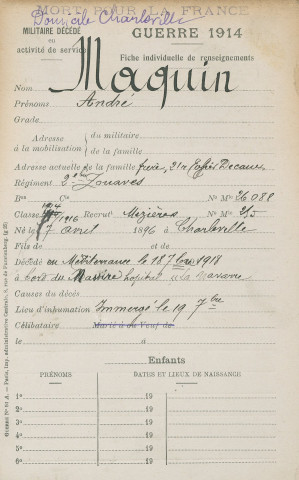 MORT POUR LA FRANCE
Domicile Charleville
MILITAIRE DÉCÉDÉ
ou
activité de service
GUERRE 1914
Fiche individuelle de renseignements
Nom Maquin
Prénoms André
Grade
Adresse à la mobilisation { du militaire
de la famille
Adresse actuelle de la famille frère, 21
Régiment 2e Zouaves
Bon Cie N° Mle 26088
Classe 1916 Recrut Mézières N° Mle 213
Né le 7 avril 1896 à Charleville
Fils de et de
Décédé en Méditerranée le 18 7bre 1918
à bord du Navire hopital "la Navarre
Causes du décès
Lieu d'inhumation Immergé le 19 7bre
Célibataire Marié à ou Veuf de
le à
Enfants
PRÉNOMS DATES ET LIEUX DE NAISSANCE
1° 19
2° 19
3° 19
4° 19
5° 19
6° 19